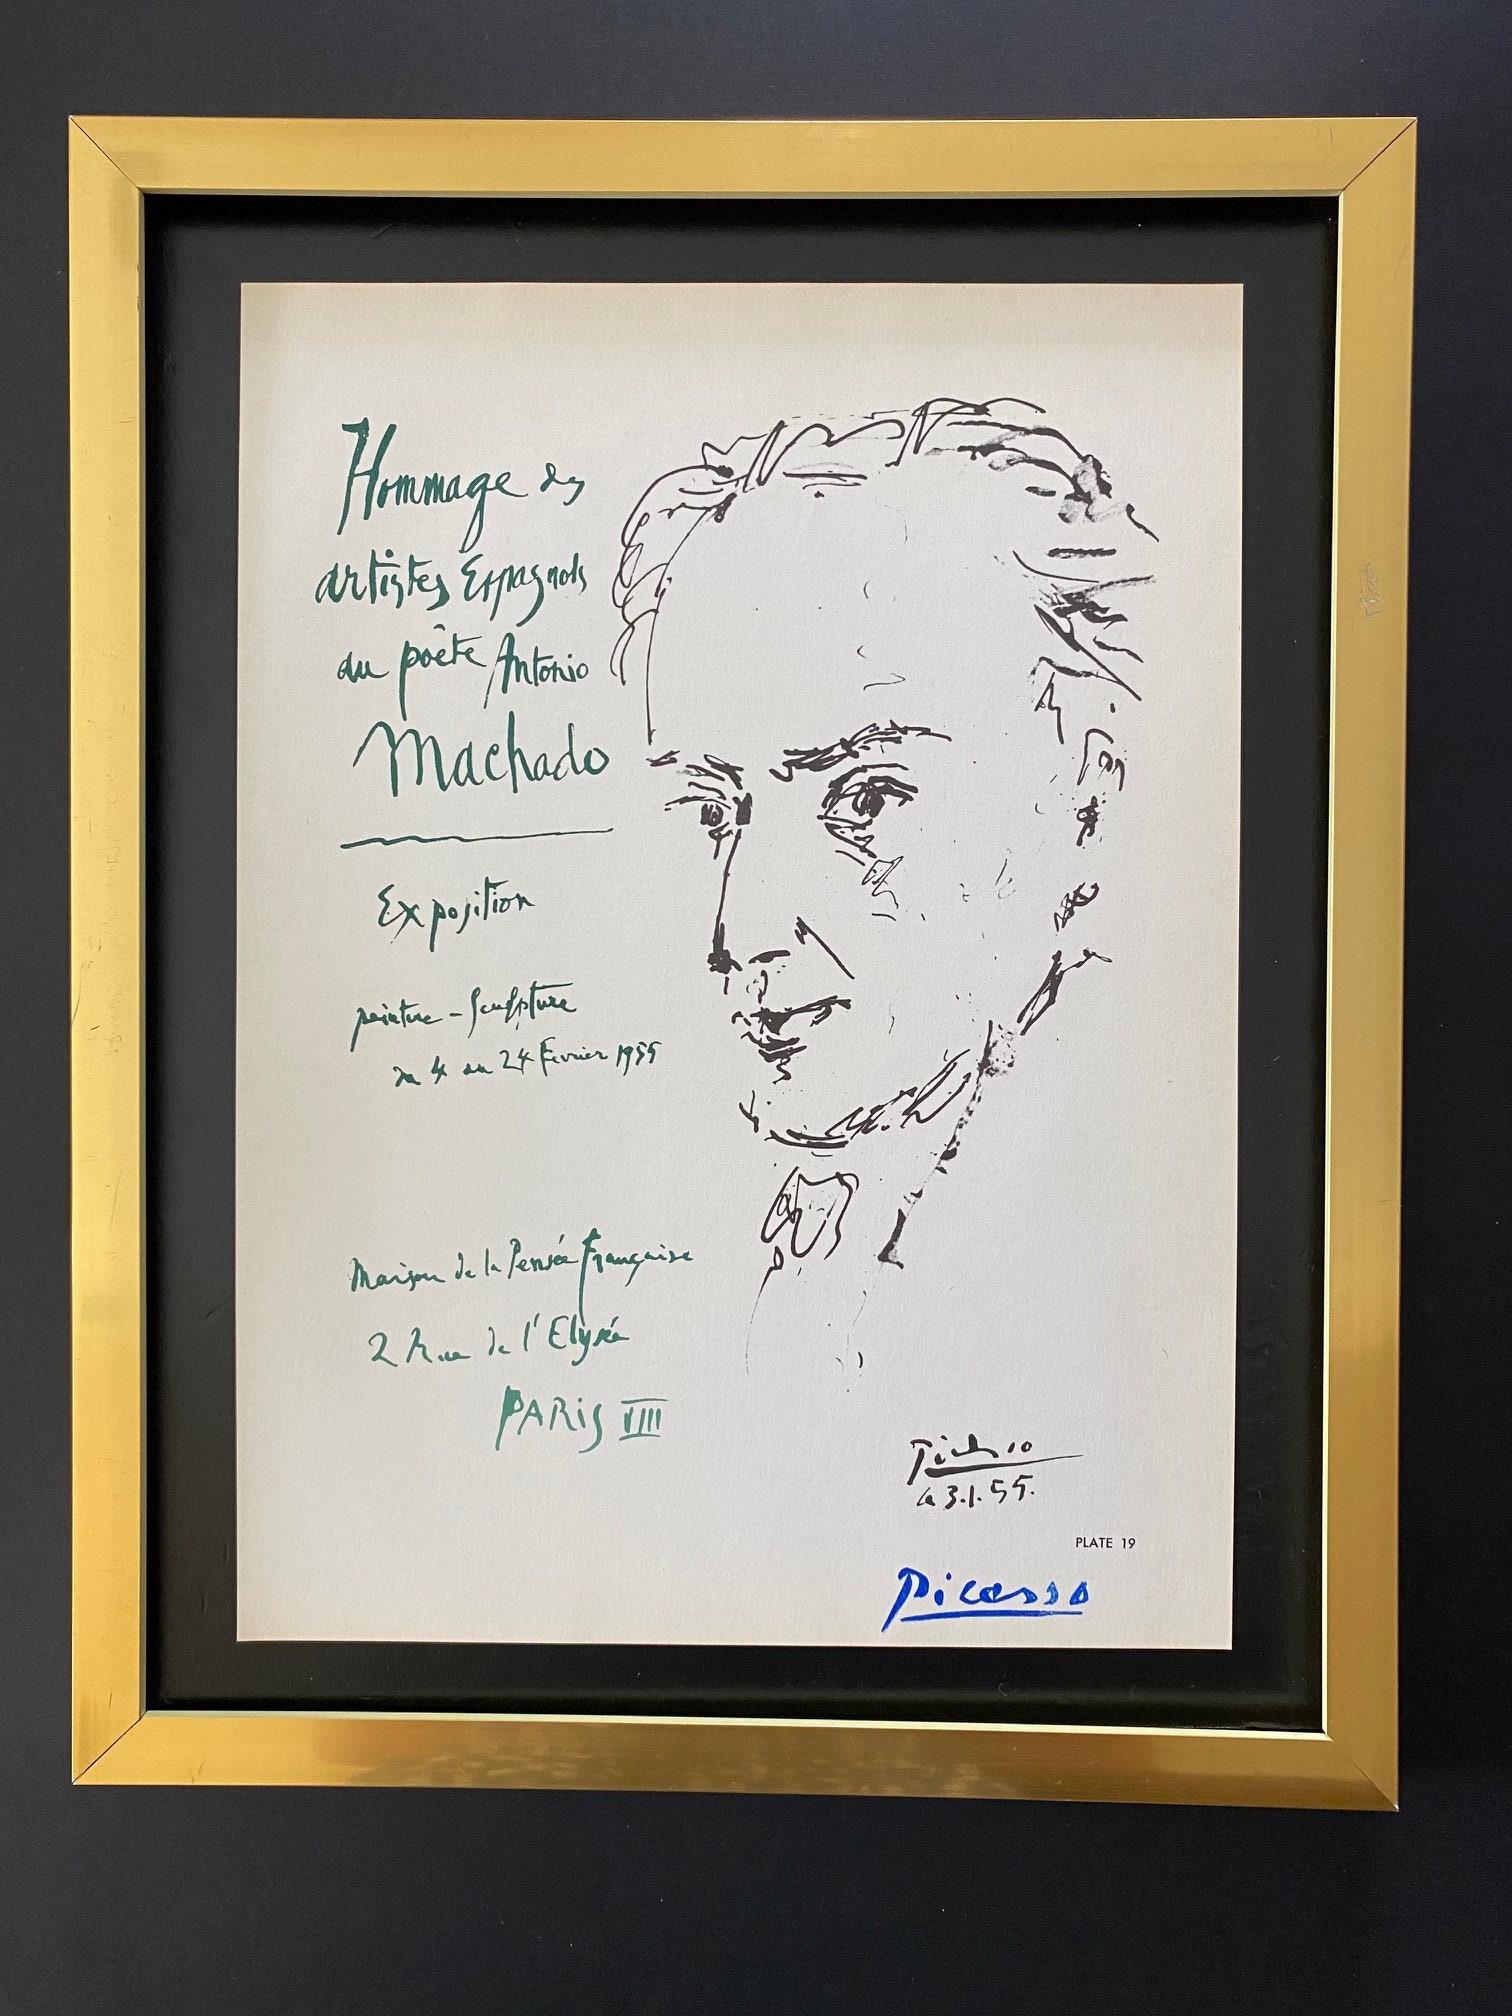 Hommage des
artistes Espagnols
au poète Antonio
Machado
Exposition
peinture - Sculpture
du 4 au 24 Fevrier 1955
Maison de la Pensée Française
2 Rue de l'Elysée
PARIS VIII
Picasso
le 3.1.55.
PLATE 19
Picasso